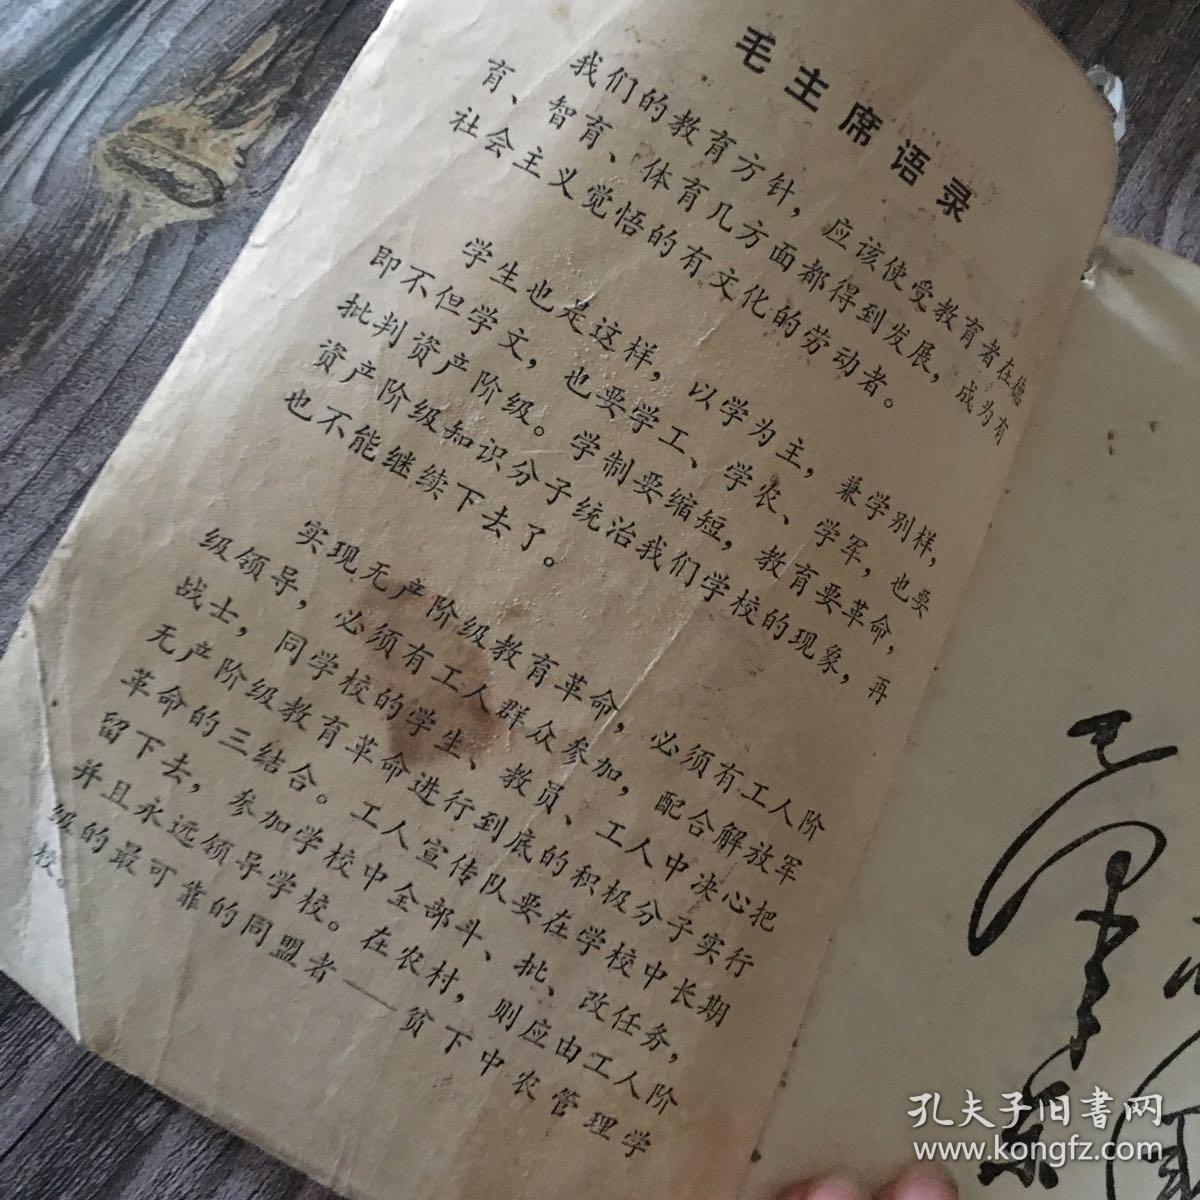 毛主席语录
我们的教育方针，应该使受教育者在德
育、智育、体育几方面都得到发展，成为有
社会主义觉悟的有文化的劳动者。
学生也是这样，以学为主，兼学别样，
即不但学文，也要学工、学农、学军，也要
批判资产阶级。学制要缩短，教育要革命，
资产阶级知识分子统治我们学校的现象，再
也不能继续下去了。
实现无产阶级教育革命，必须有工人阶
级领导，必须有工人群众参加，配合解放军
战士，同学校的学生、教员、工人中决心把
无产阶级教育革命进行到底的积极分子实行
革命的三结合。工人宣传队要在学校中长期
留下去，参加学校中全部斗、批、改任务，
并且永远领导学校。在农村，则应由工人阶
级的最可靠的同盟者——贫下中农管理学
校。
孔夫子旧书网
www.kongfz.com